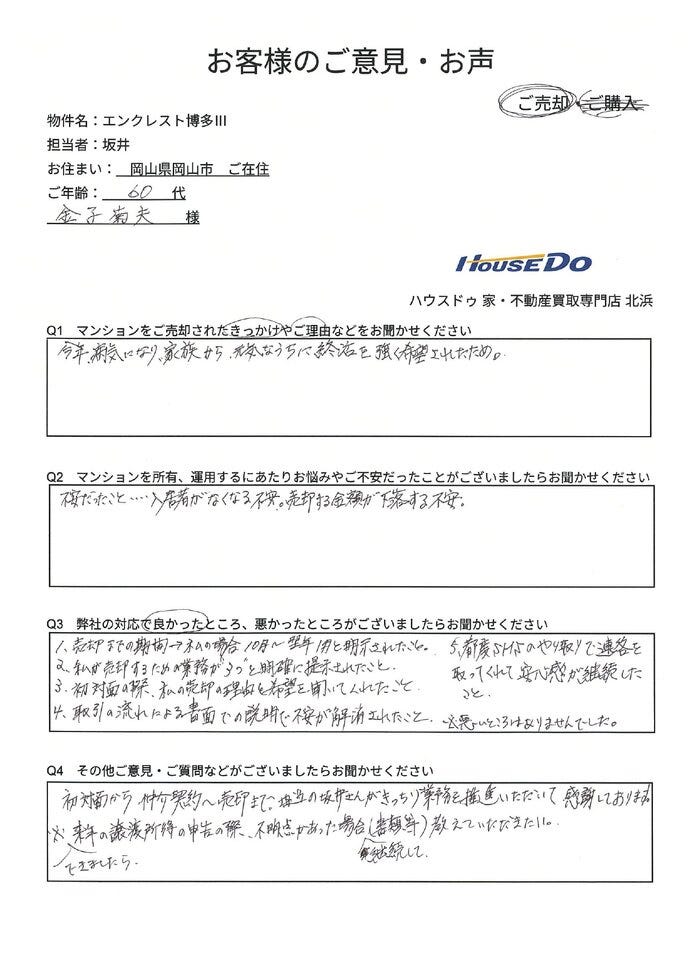 お客様のご意見・お声
ご売却・ご購入
物件名：エンクレスト博多III
担当者：坂井
お住まい： 岡山県岡山市 ご在住
ご年齢： 60 代
金子 菊夫 様
HOUSEDO
ハウスドゥ 家・不動産買取専門店 北浜
Q1 マンションをご売却されたきっかけやご理由などをお聞かせください
今年、病気になり、家族から、元気なうちに終活を強く希望されたため。
Q2 マンションを所有、運用するにあたりお悩みやご不安だったことがございましたらお聞かせください
不安だったこと……入居者がなくなる不安。売却する金額が下落する不安。
Q3 弊社の対応で良かったところ、悪かったところがございましたらお聞かせください
1、売却までの期間→私の場合10月～翌年1月と明示されたこと。
2、私が売却するための業務が"3つ"と明確に提示されたこと。
3、初対面の際、私の売却の理由と希望を聞いてくれたこと
4、取引の流れによる書面での説明で不安が解消されたこと。
5、都度SMSのやり取りで連絡を
取ってくれて安心感が継続した
こと。
※悪いところはありませんでした。
Q4 その他ご意見・ご質問などがございましたらお聞かせください
初対面から仲介契約～売却まで、担当の坂井さんがきっちり業務を推進いただいて感謝しております
※来年の譲渡所得の申告の際、不明点があった場合(書類等)教えていただきたい。
できましたら、
継続して